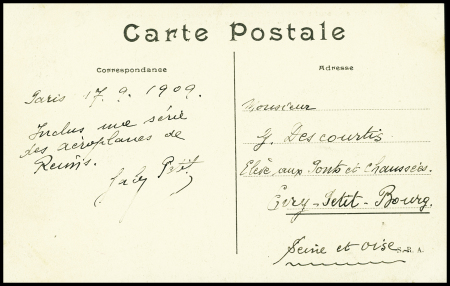 Carte Postale
Correspondance
Paris 17.9.1909.
Inclus une série
des aéroplanes de
Reims.
Adresse
Monsieur
G. Descourtis
Elève aux Ponts et Chaussées.
Evry-Petit-Bourg.
Seine et Oise